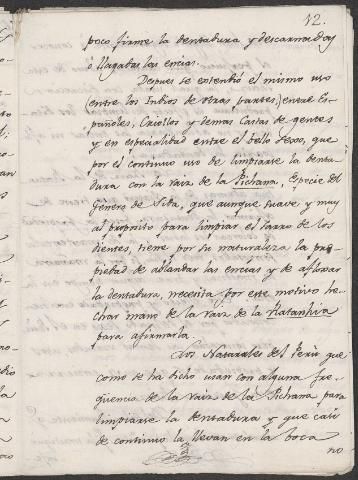 12.
poco firme la dentadura y descarnadas
ó llagadas las encías.
Despues se extendió el mismo uso
(entre los Indios de otras partes) entre Es-
pañoles, Criollos y demas Castas de gentes
y en especialidad entre el bello sexo, que
por el continuo uso de limpiarse la denta-
dura con la raiz de la Pichana, Especie del
género de Sida, que aunque suave y muy
al proposito para limpiar el sarro de los
dientes, tiene por su naturaleza la pro-
piedad de ablandar las encías y de afloxar
la dentadura, necesita por este motivo he-
char mano de la raiz de la Ratanhia
para afirmarla.
Los Naturales del Perú que
como se ha dicho usan con alguna fre-
qüencia de la raiz de la Pichana para
limpiarse la dentadura y que casi
de continuo la llevan en la boca
no